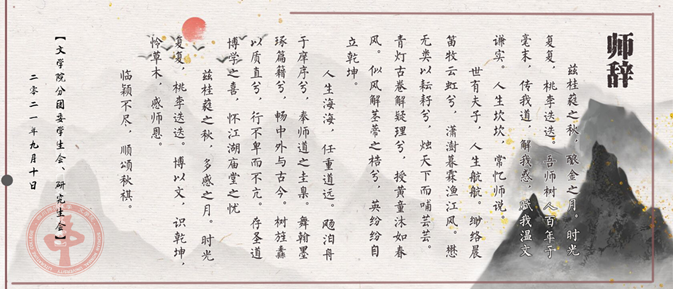 师辞
兹桂蕤之秋，酿金之月。时光
复复，桃李迭迭。吾师树人百年于
毫末，传我道，解我惑，赐我温文
谦实。人生坎坎，常忆师说。
世有夫子，人生航航。缈络展
笛牧云虹兮，潇澍暮霖渔江风。懋
无类以耘耔兮，烛天下而哺芸芸。
青灯古卷解疑理兮，授黄童沐如春
风。似风解茎蒂之桔兮，英纷纷自
立乾坤。
人生海海，任重道远。飏泊舟
于庠序兮，奉师道之圭臬。舞翰墨
琢篇籍兮，畅中外与古今。树旌纛
以质直兮，行不卑而不亢。存圣道
博学之喜，怀江湖庙堂之忧
兹桂蕤之秋，多感之月。时光
复复，桃李迭迭。博以文，识乾坤，
怜草木，感师恩。
临颖不尽，顺颂秋祺。
【文学院分团委学生会、研究生会】
二零二一年九月十日